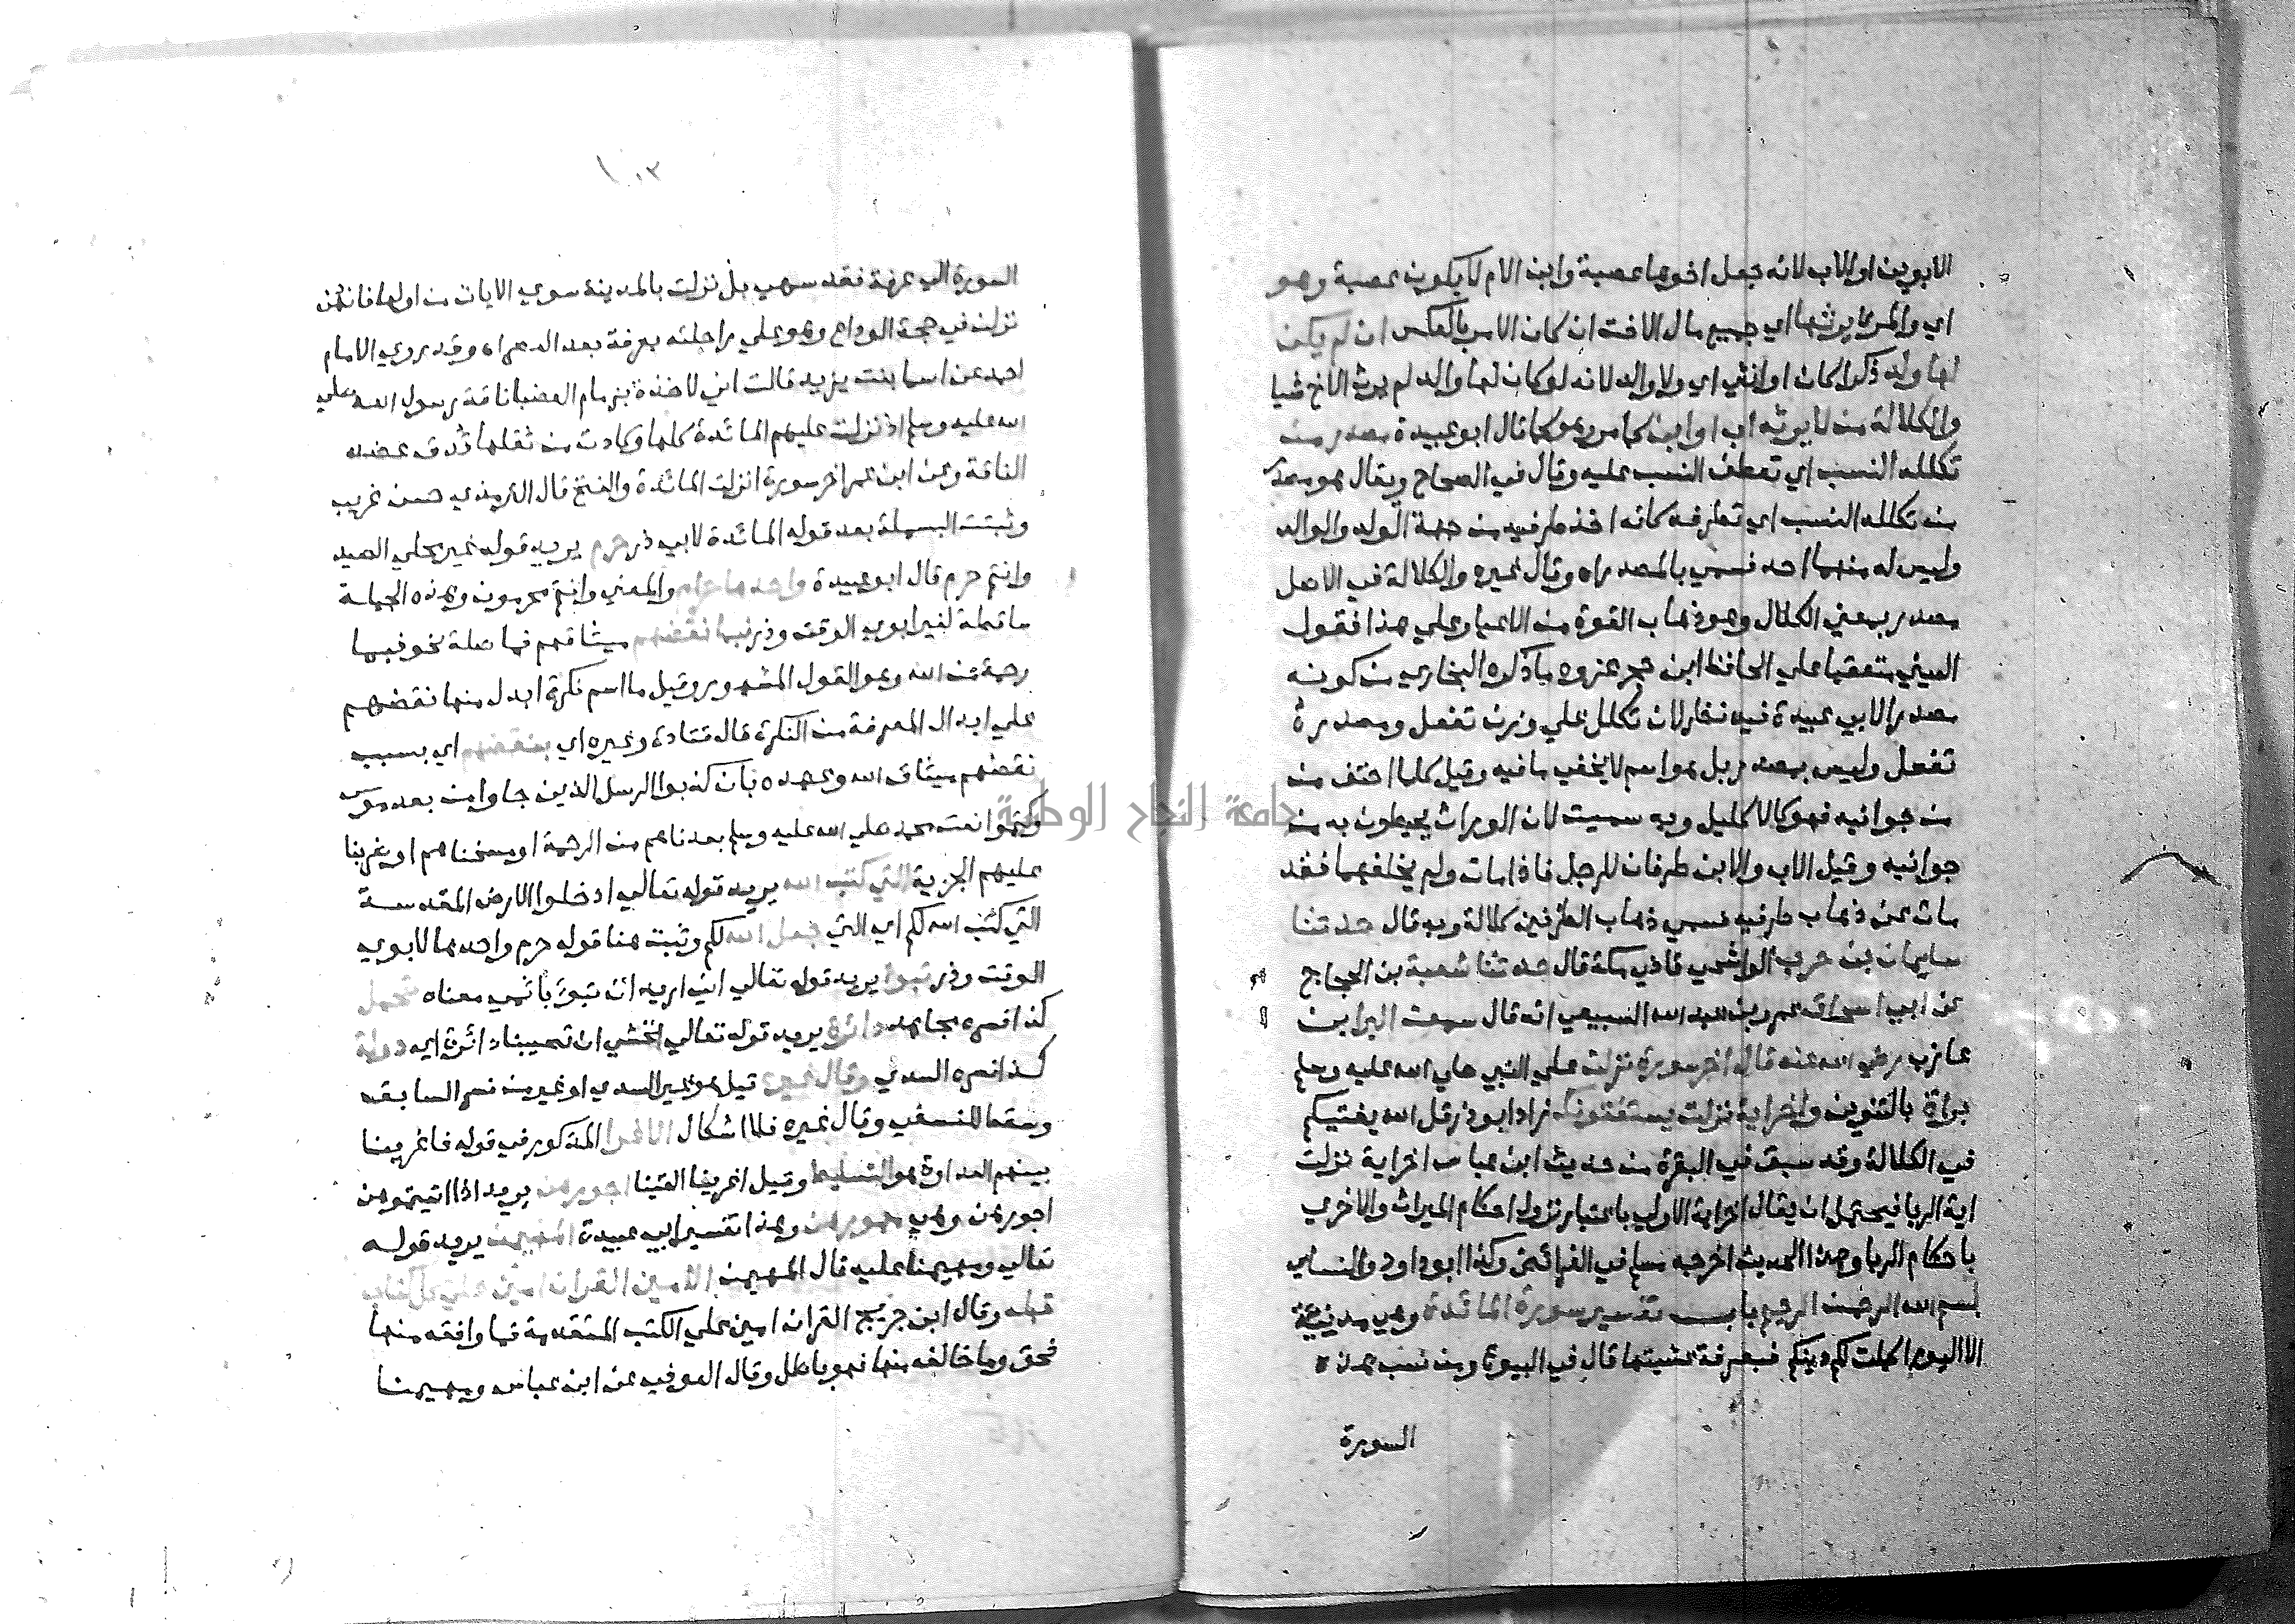 الابوين او الاب لانه جعل اخوها عصبة وابن الام لا يكون عصبة وهو
اي والمرء يرثها اي جميع مال الاخت ان كان الامر بالعكس ان لم يكن
لها ولد ذكرا كان او انثى اي ولا والد لانه لو كان لها والد لم يرث الاخ شيا
والكلالة من لا يرثه اب او ابن كما مر وهو كما قال ابو عبيدة مصدر من
تكلله النسب اي تعطف النسب عليه وقال في الصحاح ويقال هو مصدر
من تكلله النسب اي تطرفه كانه اخذ طرفيه من جهة الولد والوالد
وليس له منهما احد فسمي بالمصدر اه وقال غيره والكلالة في الاصل
مصدر بمعني الكلال وهو ذهاب القوة من الاعيا وعلي هذا فقول
العيني متعقبا علي الحافظ ابن حجر عزوه ما ذكره البخاري من كونه
مصدرا لابي عبيدة فيه نظر لان تكلل علي وزن تفعل ومصدره
تفعل وليس بمصدر بل هو اسم لا يخفي ما فيه وقيل كلما احتف من
من جوانبه فهو كالاكليل وبه سميت لان الوراث يحيطون به من
جوانبه وقيل الاب والابن طرفان للرجل فاذا مات ولم يخلفهما فقد
مات عن ذهاب طرفيه فسمي ذهاب الطرفين كلالة وبه قال حدثنا
سليمان بن حرب الواشحي قاضي مكة قال حدثنا شعبة بن الحجاج
عن ابي اسحاق عمرو بن عبد الله السبيعي انه قال سمعت البرا بن
عازب رضي الله عنه قال اخر سورة نزلت علي النبي صلي الله عليه وسلم
براة بالتنوين واخر اية نزلت يستفتونك زاد ابو ذر قل الله يفتيكم
في الكلالة وقد سبق في البقرة من حديث ابن عباس اخر اية نزلت
اية الربا فيحتمل ان يقال اخرية الاولي باعتبار نزول احكام الميراث والاخري
باحكام الربا وهذا الحديث اخرجه مسلم في الفرائض وكذا ابو داود والنسائي
بسم الله الرحمن الرحيم باب تفسير سورة المائدة وهي مدنية
الا اليوم اكملت لكم دينكم فبعرفة عشيتها قال في الينبوع ومن نسب هذه
السورة
١٠٣
السورة الي عرفة فقد سهي بل نزلت بالمدينة سوي الايات من اولها فانهن
نزلن في حجة الوداع وهو علي راحلته بعرفة بعد العصر اه وقد روي الامام
احمد عن اسما بنت يزيد قالت اني لاخذة بزمام العضبا ناقة رسول الله صلي
الله عليه وسلم اذ نزلت عليهم المائدة كلها وكادت من ثقلها تدق عضد
الناقة وعن ابن عمر اخر سورة انزلت المائدة والفتح قال الترمذي حسن غريب
وثبتت البسملة بعد قوله المائدة لابي ذر حرم يريد قوله غير محلي الصيد
وانتم حرم قال ابو عبيدة واحدها حرام والمعني وانتم محرمون وهذه الجملة
ساقطة لغير ابوي الوقت وذر فبما نقضهم ميثاقهم فما صلة نحو فبما
رحمة من الله وهو القول المشهور وقيل ما اسم نكرة ابدل منها نقضهم
علي ابدال المعرفة من النكرة قال قتادة وغيره اي بنقضهم اي بسبب
نقضهم ميثاق الله وعهده بان كذبوا الرسل الذين جاوا من بعد موسي
وكتموا نعت محمد صلي الله عليه وسلم بعدناهم من الرحمة او مسخناهم او ضربنا
عليهم الجزية التي كتب الله يريد قوله تعالي ادخلوا الارض المقدسة
التي كتب الله لكم اي التي جعل الله لكم وثبت هنا قوله حرم واحدها لابوي
الوقت وذر تبوا يريد قوله تعالي اني اريد ان تبوء باثمي معناه تحمل
كذا فسره مجاهد دائرة يريد قوله تعالي نخشي ان تصيبنا دائرة اي دولة
كذا فسره السدي وقال غيره قيل هو غير السدي او غير من فسر السابق
وسقط للنسفي وقال غيره فلا اشكال الاغرا المذكور في قوله فاغرينا
بينهم العداوة هو التسليط وقيل اغرينا القينا اجورهن يريد اذا اتيتموهن
اجورهن وهي مهورهن وهذا تفسير ابي عبيدة المهيمن يريد قوله
تعالي ومهيمنا عليه قال المهيمن الامين القران امين علي كل كتاب
قبله وقال ابن جريج القران امين علي الكتب المتقدمة فما وافقه منها
فحق وما خالفه منها فهو باطل وقال العوفي عن ابن عباس ومهيمنا
جامعة النجاح الوطنية